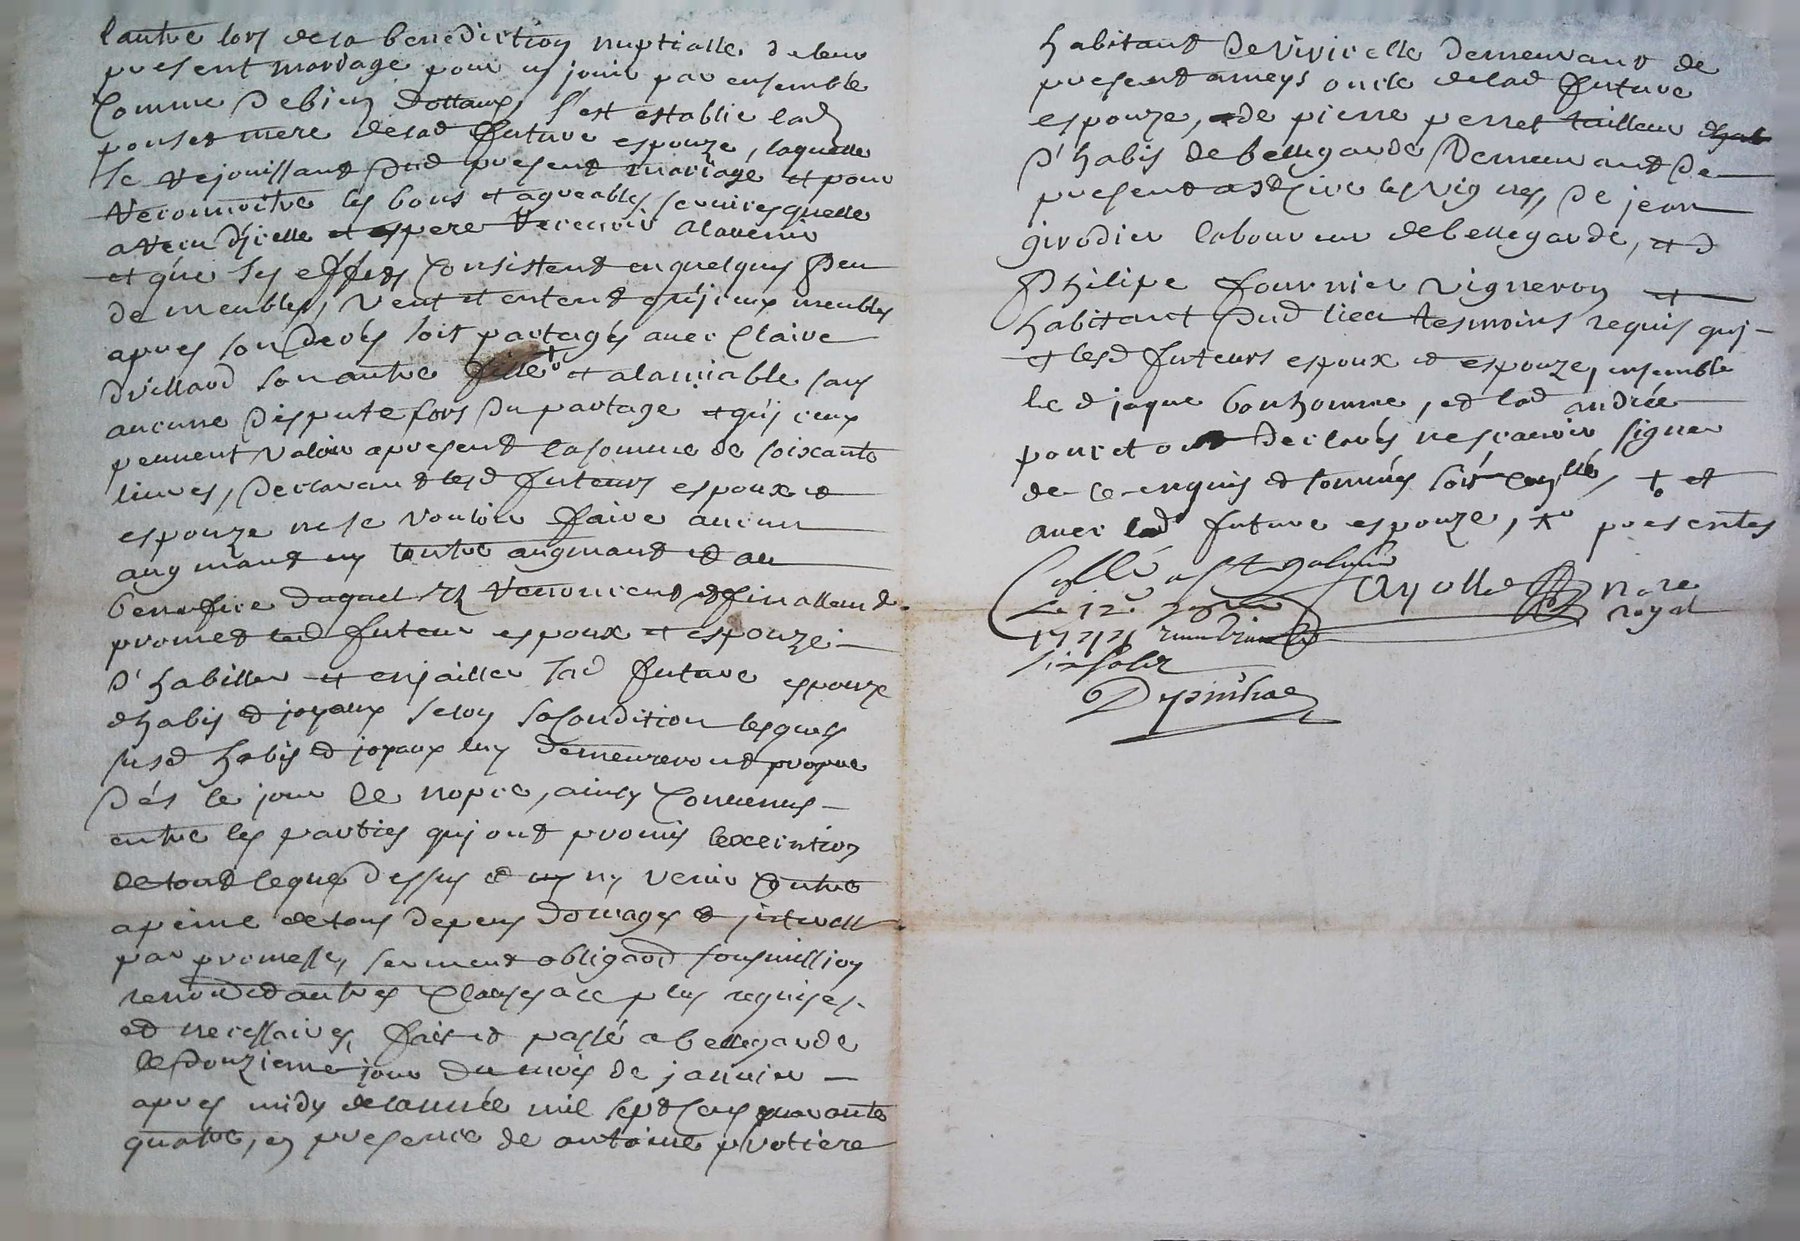 lautre lors de la benediction nuptialle de leur
present mariage pour en jouir par ensemble
comme de bien dottaux, s'est establie lad
poncet mere de lad future espouze, laquelle
se rejouissant dud present mariage et pour
reconnoitre les bons et agreables services quelle
a receu d'icelle et espere recevoir alavenir
et que ses effets consistent en quelques peu
de meubles, veut et entend qu'iceux meubles
apres son deces soit partages avec Claire
drillard son autre fille + et alamiable sans
aucune dispute lors du partage et qu'iceux
peuvent valoir apresent la somme de soixante
livres, declarant lesd futeurs espoux et
espouze ne se vouloir faire aucun
augmant ny contre augmant et au
benefice duquel ils renoncent et finallement
promet led futeur espoux et espouze
d'habiller et enjailler lad future espouze
d'habis et joyaux selon sa condition lesquels
susd habis et joyaux luy demeureront propre
dés le jour de nopce, ainsy convenus
entre les parties qui ont promis lexecution
de tout ce que dessus et ny venir contre
apeine de tous depens domages et
par promesse, serment obligaon soumission
renon et autres clauses a ce plus requises
et necessaires, fait et passé a bellegarde
le douzieme jour du mois de janvier
apres midy de lannée mil sept cens quarante
quatre, en presence de antoine protiere
habitant de Viricelle demeurant de
present a meys oncle de lad future
espouze, de pierre perret tailleur
d'habis de bellegarde demeurant de
present a les vignes, de jean
girodier laboureur de bellegarde, et d
philipe fournier vigneron et
habitant dud lieu tesmoins requis qui
et lesd futeurs espoux et espouze, ensemble
led jaque bonhomme, et lad andrée
poncet ont declarés ne scavoir signer
de ce enquis et sommés soit con^llé, + et
avec lad future espouze, presentes
Conllé a St galmier
Le 12e
1744
six sols
notre
royal